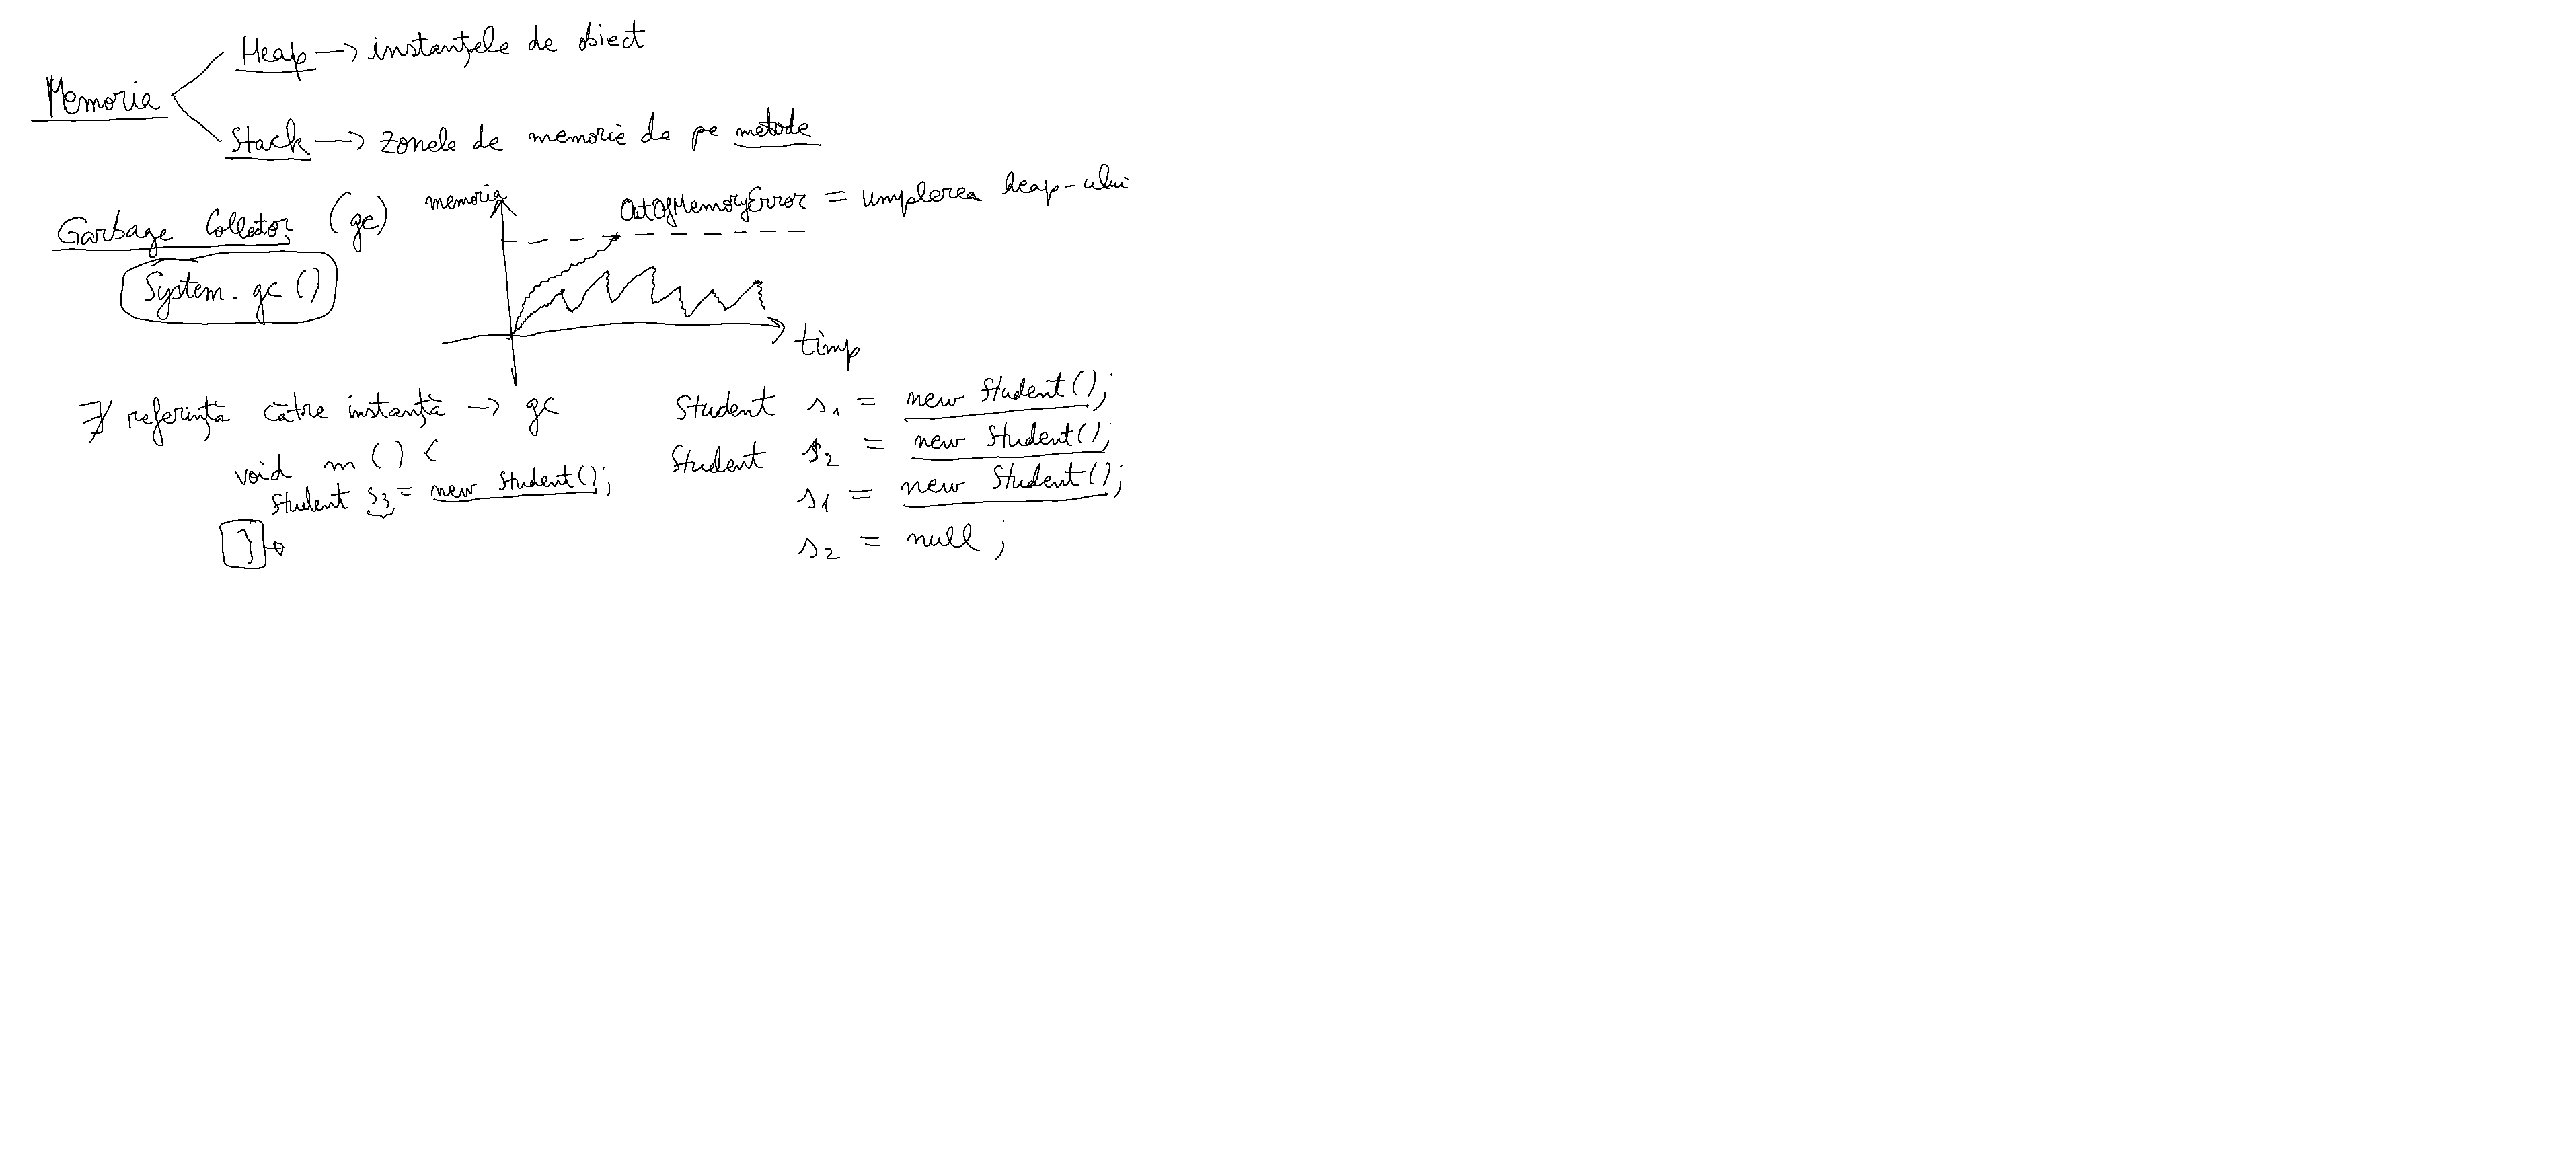 Memoria
Heap → instanțele de obiect
Stack → zonele de memorie de pe metode
Garbage Collector (gc)
System.gc()
memoria
OutOfMemoryError = umplerea heap-ului
timp
∄ referință către instanță → gc
void m() {
Student s3 = new Student();
}
Student s1 = new Student();
Student s2 = new Student();
s1 = new Student();
s2 = null;